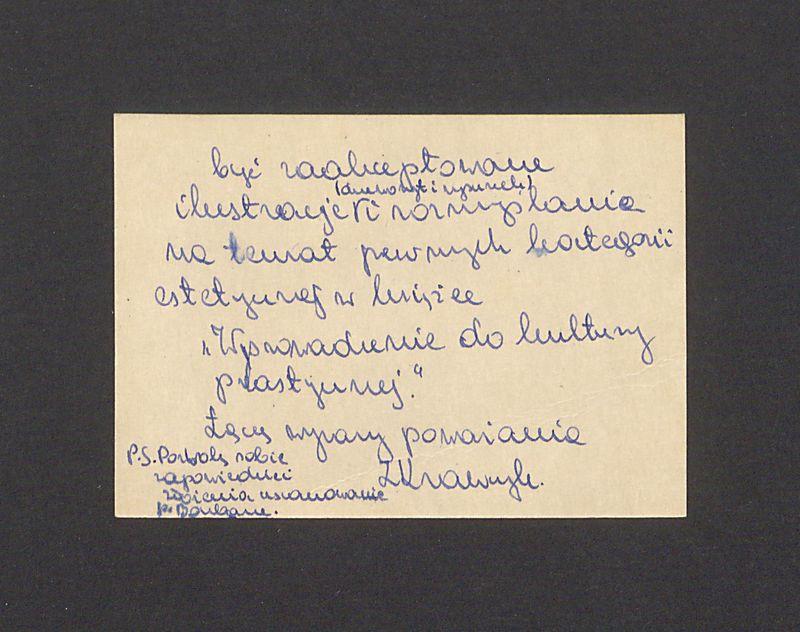 być zaakceptowane
(drzeworyt i rysunek)
ilustracje i rozmyślania
na temat pewnych kategorii
estetycznej w książce
„Wprowadzenie do kultury
plastycznej."
Łączę wyrazy poważania
ZKrawczyk.
P.S. Pozwolę sobie
złożenia uszanowanie
P.